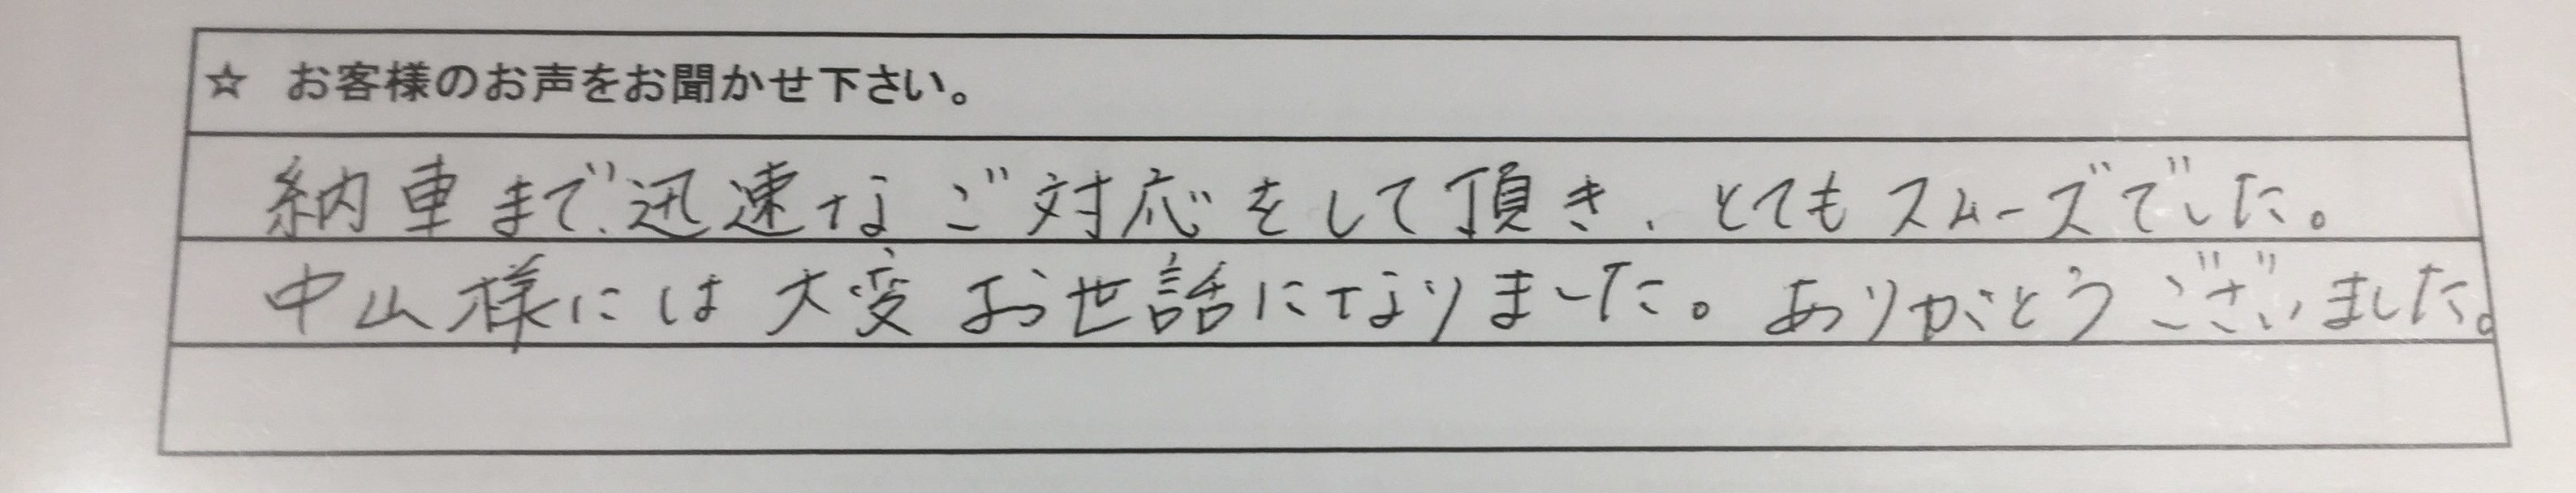 ☆ お客様のお声をお聞かせ下さい。
納車まで、迅速なご対応をして頂き、とてもスムーズでした。
中山様には大変お世話になりました。ありがとうございました。